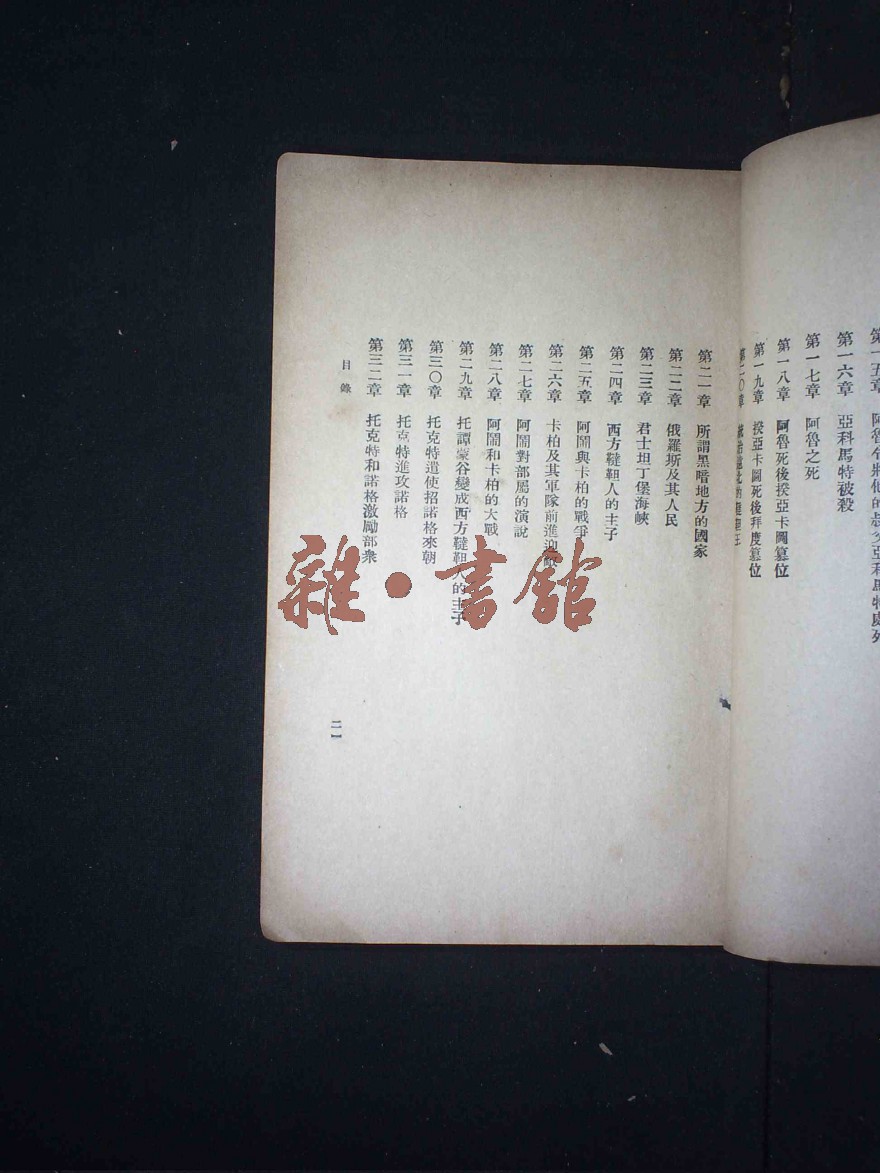 第一五章 阿魯令將他的叔父亞科馬特處死
第一六章 亞科馬特被殺
第一七章 阿魯之死
第一八章 阿魯死後揆亞卡圖篡位
第一九章 揆亞卡圖死後拜度篡位
第二〇章 統治遠北的
第二一章 所謂黑暗地方的國家
第二二章 俄羅斯及其人民
第二三章 君士坦丁堡海峽
第二四章 西方韃靼人的主子
第二五章 阿鬧與卡柏的戰爭
第二六章 卡柏及其軍隊前進迎敵
第二七章 阿鬧對部屬的演說
第二八章 阿鬧和卡柏的大戰
第二九章 托譚蒙谷變成西方韃靼人的主子
第三〇章 托克特遣使招諾格來朝
第三一章 托克特進攻諾格
第三二章 托克特和諾格激勵部衆
目錄
二一
雜·書館